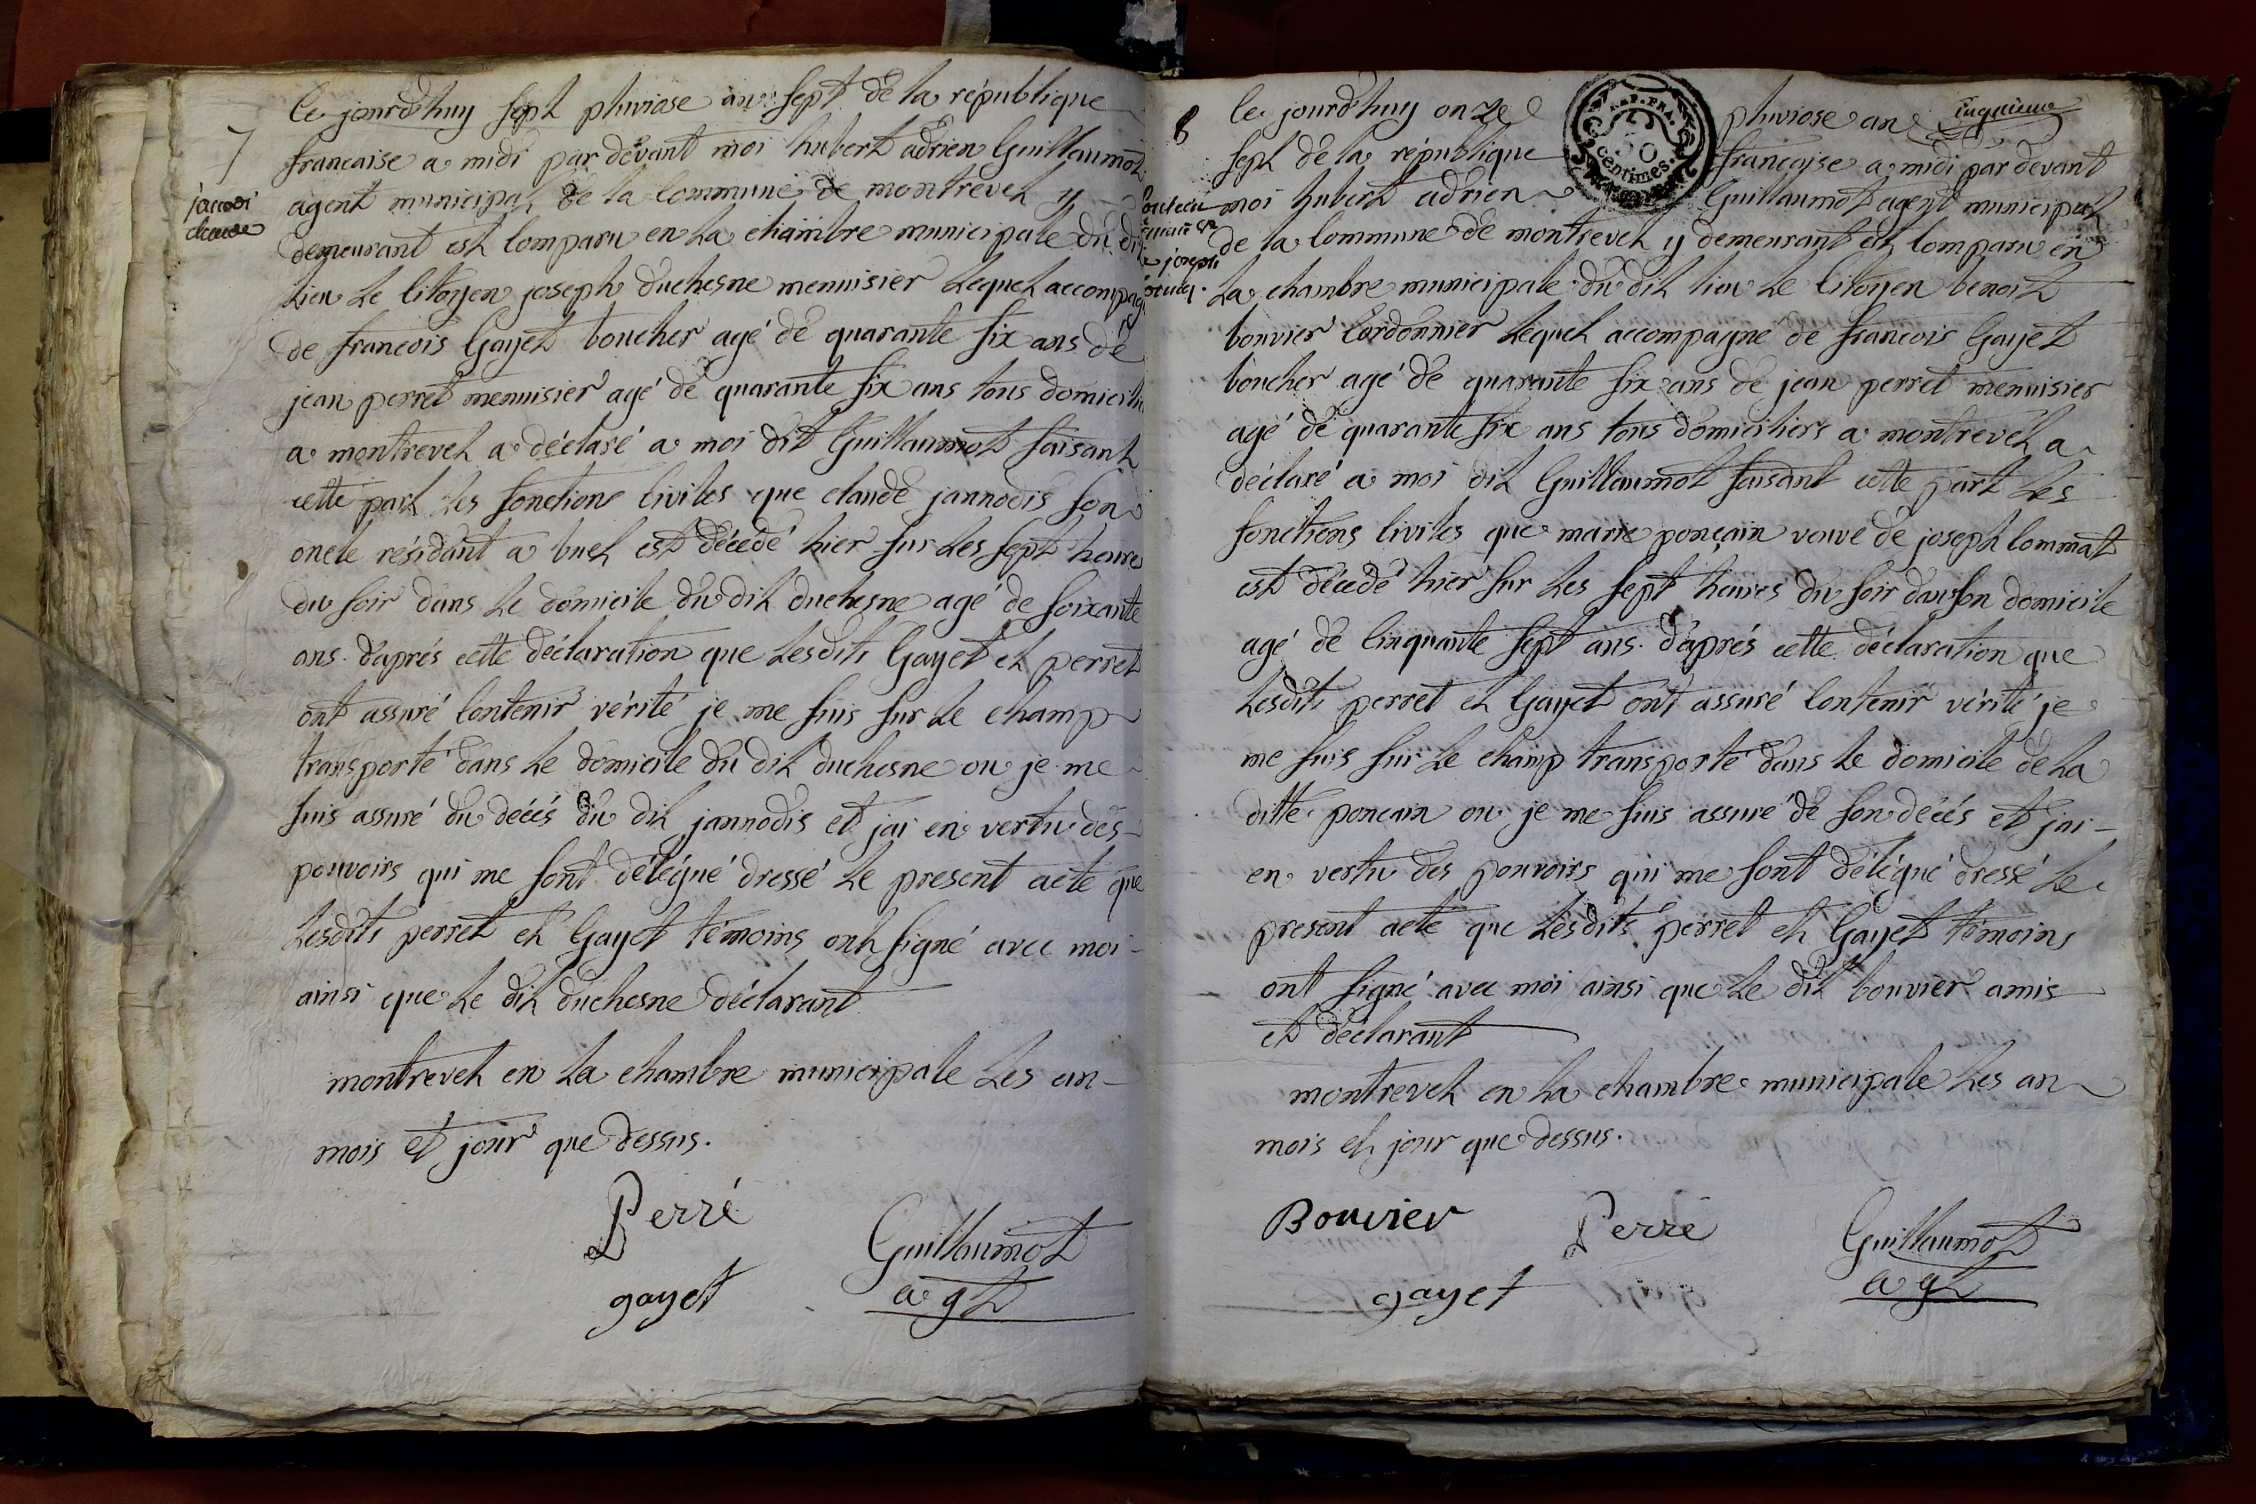 7
le jourd'huy sept pluviose an sept de la république
francaise a midi par devant moi hubert adrien Guillaumot
agent municipal de la commune de montrevel y
demeurant est comparu en la chambre municipale du dit
lieu le citoyen joseph duchesne menuisier lequel accompagné
de francois Gayet boucher agé de quarante six ans de
jean perret menuisier agé de quarante six ans tous domicilie
a montrevel a déclaré a moi dit Guillaumot faisant
cette part les fonctions civiles que claude jannodis son
oncle résidant a buel est décedé hier sur les sept heures
du soir dans le domicile du dit duchesne agé de soixante
ans. d'aprés cette déclaration que lesdits Gayet et perret
ont assuré contenir vérité je me suis sur le champ
transporté dans le domicile du dit duchesne ou je me
suis assuré du décés du dit jannodis et j'ai en vertu des
pouvoirs qui me sont délégué dressé le present acte que
lesdits perret et Gayet témoins ont signé avec moi
ainsi que le dit duchesne déclarant
montrevel en la chambre municipale les an
mois et jour que dessus.
Perré
Guillaumot
gayet
agt
8
le jourd'huy onze pluviose an
sept de la république francaise a midi par devant
moi hubert adrien Guillaumot agent municipal
de la commune de montrevel y demeurant est comparu en
la chambre municipale du dit lieu le citoyen benoit
bouvier cordonnier lequel accompagné de francois Gayet
boucher agé de quarante six ans de jean perret menuisier
agé de quarante six ans tous domiciliers a montrevel a
déclaré a moi dit Guillaumot faisant cette part les
fonctions civiles que marie ponçain veuve de joseph commat
est décedé hier sur les sept heures du soir dans son domicile
agé de cinquante sept ans. d'aprés cette déclaration que
lesdits perret et Gayet ont assuré contenir vérité je
me suis sur le champ transporté dans le domicile de la
ditte poncain ou je me suis assuré de son décés et j'ai
en vertu des pouvoirs qui me sont délégué dressé le
present acte que lesdits perret et Gayet témoins
ont signé avec moi ainsi que le dit bouvier amis
et déclarant
montrevel en la chambre municipale les an
mois et jour que dessus.
Bouvier
Perré
Guillaumot
gayet
agt